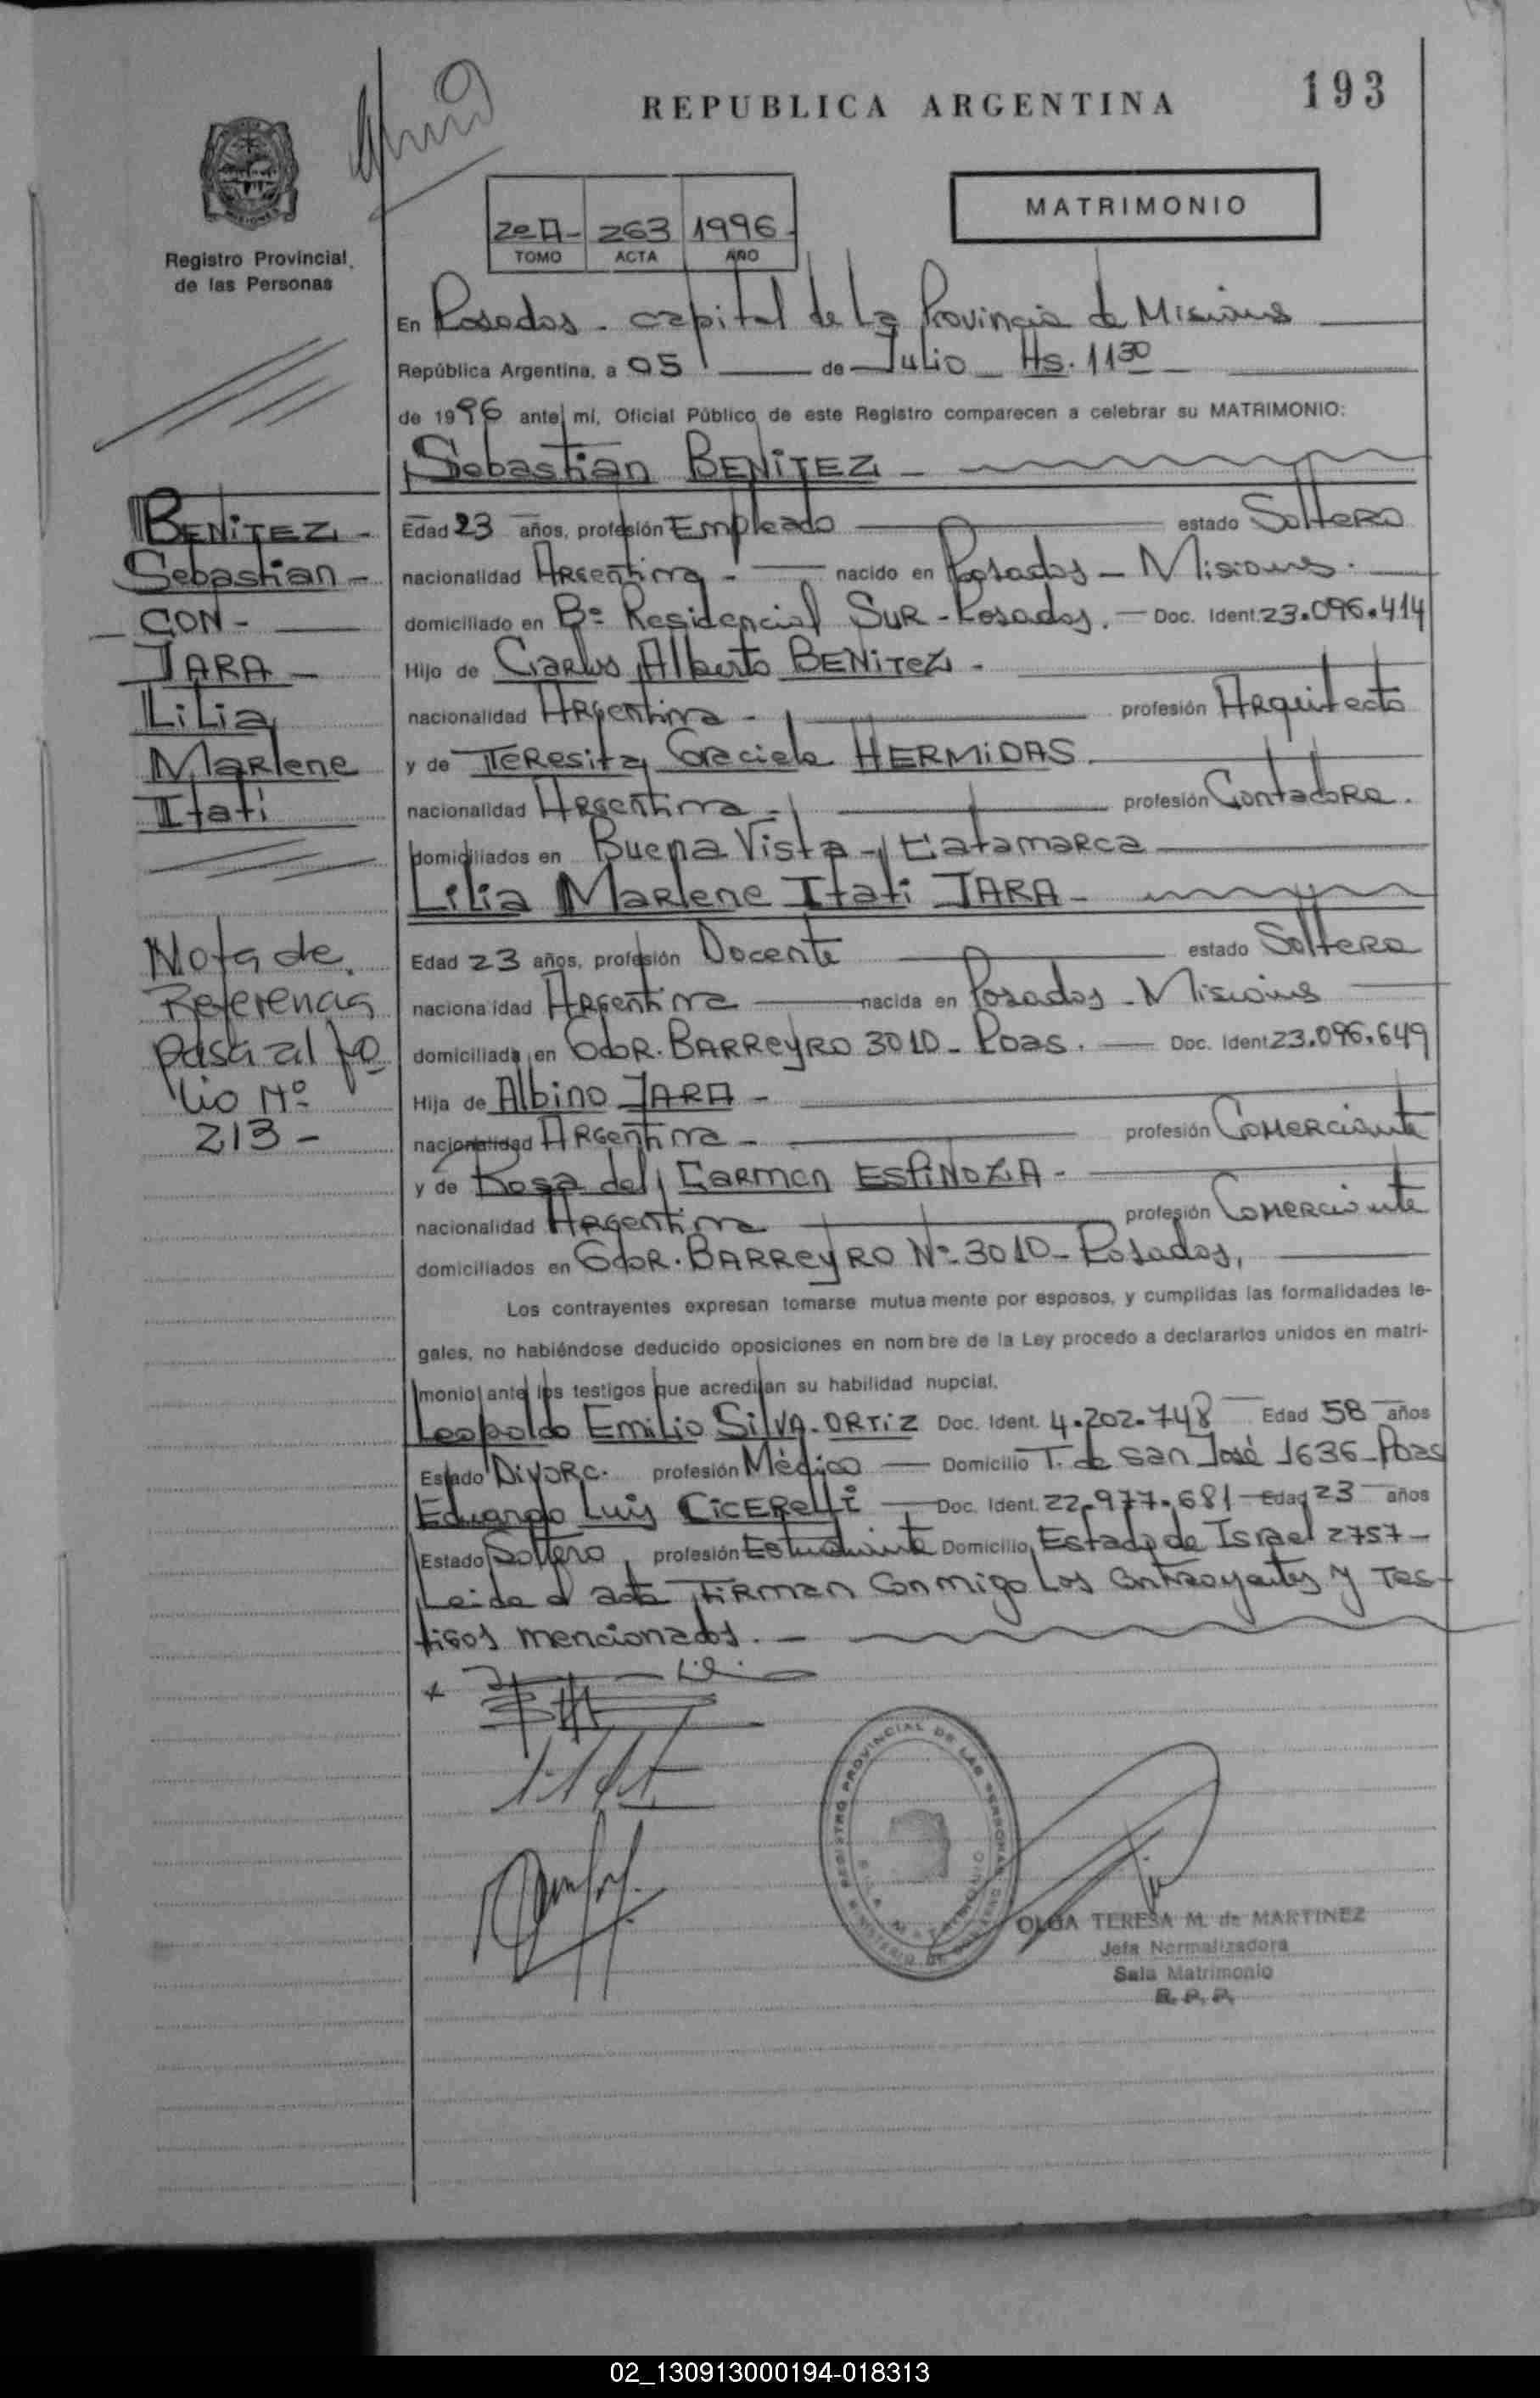 193
REPUBLICA ARGENTINA
MATRIMONIO
Registro Provincial
de las Personas
2º A - 263 1996 -
TOMO ACTA AÑO
En Posadas - capital de La Provincia de Misiones
República Argentina, a 05 de Julio Hs. 11 30
de 1996 ante mí, Oficial Público de este Registro comparecen a celebrar su MATRIMONIO:
Sebastian BENITEZ -
Edad 23 años, profesión Empleado estado Soltero
nacionalidad Argentina - nacido en Posadas - Misiones.
domiciliado en Bº Residencial Sur - Posadas. - Doc. Ident. 23.096.414
Hijo de Carlos Alberto BENITEZ -
nacionalidad Argentina - profesión Arquitecto
y de Teresita Graciela HERMIDAS.
nacionalidad Argentina - profesión Contadora.
domiciliados en Buena Vista - Catamarca
Lilia Marlene Itati JARA -
Edad 23 años, profesión Docente estado Soltera
nacionalidad Argentina nacida en Posadas - Misiones
domiciliada en Gdor. BARREYRO 3010 - Pdas. - Doc. Ident. 23.096.649
Hija de Albino JARA -
nacionalidad Argentina - profesión Comerciante
y de Rosa del Carmen ESPINOZA -
nacionalidad Argentina profesión Comerciante
domiciliados en Gdor. BARREYRO Nº 3010 - Posadas,
Los contrayentes expresan tomarse mutuamente por esposos, y cumplidas las formalidades le-
gales, no habiéndose deducido oposiciones en nombre de la Ley procedo a declararlos unidos en matri-
monio ante los testigos que acreditan su habilidad nupcial.
Leopoldo Emilio SILVA - ORTIZ Doc. Ident. 4.202.748 Edad 58 años
Estado Divorc. profesión Médico - Domicilio T. de San José 1636 - Pdas
Eduardo Luis CICERELLI - Doc. Ident. 22.977.681 - Edad 23 años
Estado Soltero, profesión Estudiante Domicilio Estado de Israel 2757 -
Leida el acta FIRMAN conmigo Los contrayentes y Tes-
tigos mencionados. -
BENITEZ -
Sebastian -
CON -
JARA -
Lilia
Marlene
Itati
Nota de
Referencia
pasa al fo
lio Nº
213 -
REGISTRO PROVINCIAL DE LAS PERSONAS
OLGA TERESA M. de MARTINEZ
Jefa Normalizadora
Sala Matrimonio
R. P. P.
02_130913000194-018313